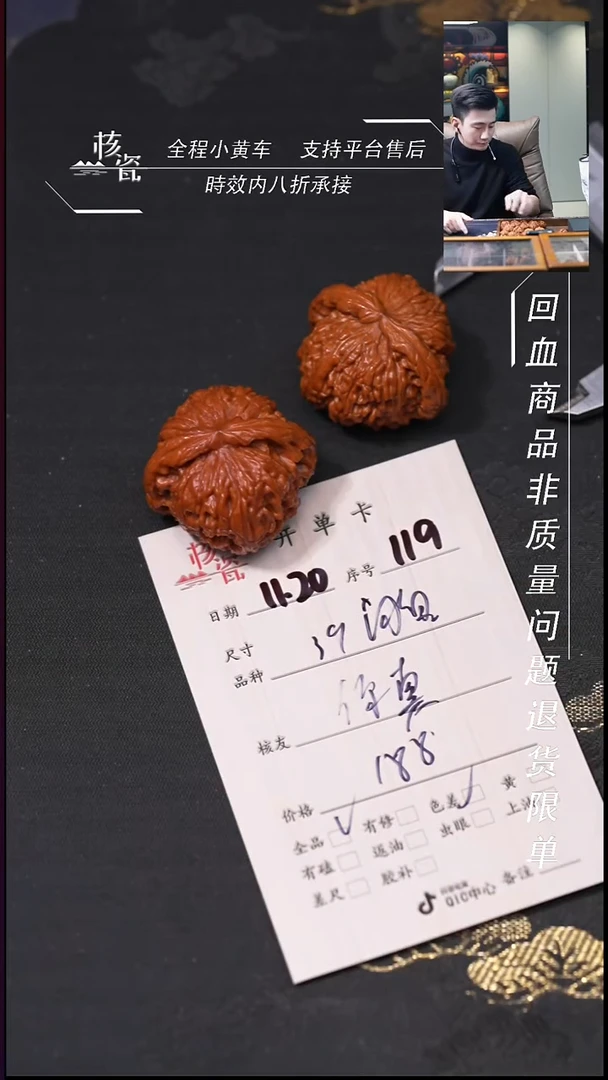 核瓷
全程小黄车 支持平台售后
時效内八折承接
回血商品非质量问题退货限单
核瓷
开单卡
日期 11.20 序号 119
尺寸 39
品种
核友
价格 188
全品 有修 色差 黄
有磕 返油 虫眼 上油
差尺 胶补
QIC中心 备注